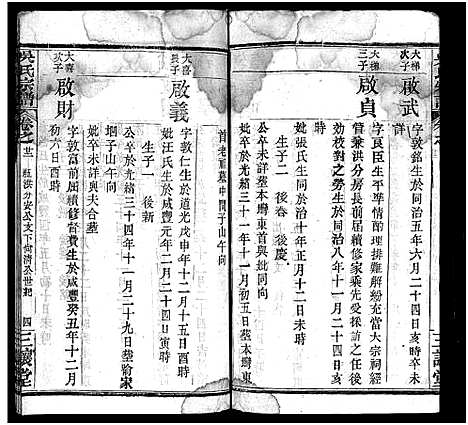 大梯
次子
啟武
字敦銘生於同治五年六月二十四日亥時
大梯
三子
啟貞
字良臣生平準情酌理排難解紛充當大宗祠經
管兼洪分房長前屆續修家乘先受採訪之任後
効校對之勞生於同治八年十一月二十四日亥
時
妣張氏生同於治十年正月十二日未時
生子二 後春 後慶
公卒未詳塟本塆東首與妣同向
妣卒於光緒三十一年十一月初五日塟本塆東
首老祖墓中間子山午向
大喜
長子
啟義
字敦仁生於道光戊申年十二月十五日酉時
妣汪氏生於咸豐元年二月二十日寅時
生子一 後新
公卒於光緒三十四年十一月二十九日塟喻家
坰子山午向
妣卒未詳與夫合塟
大喜
次子
啟財
字敦富前屆續修督費生於咸豐癸丑年十二月
初六日酉時
吳氏宗譜
卷之廿三
洪分安公文下向清公世紀
四
三讓堂